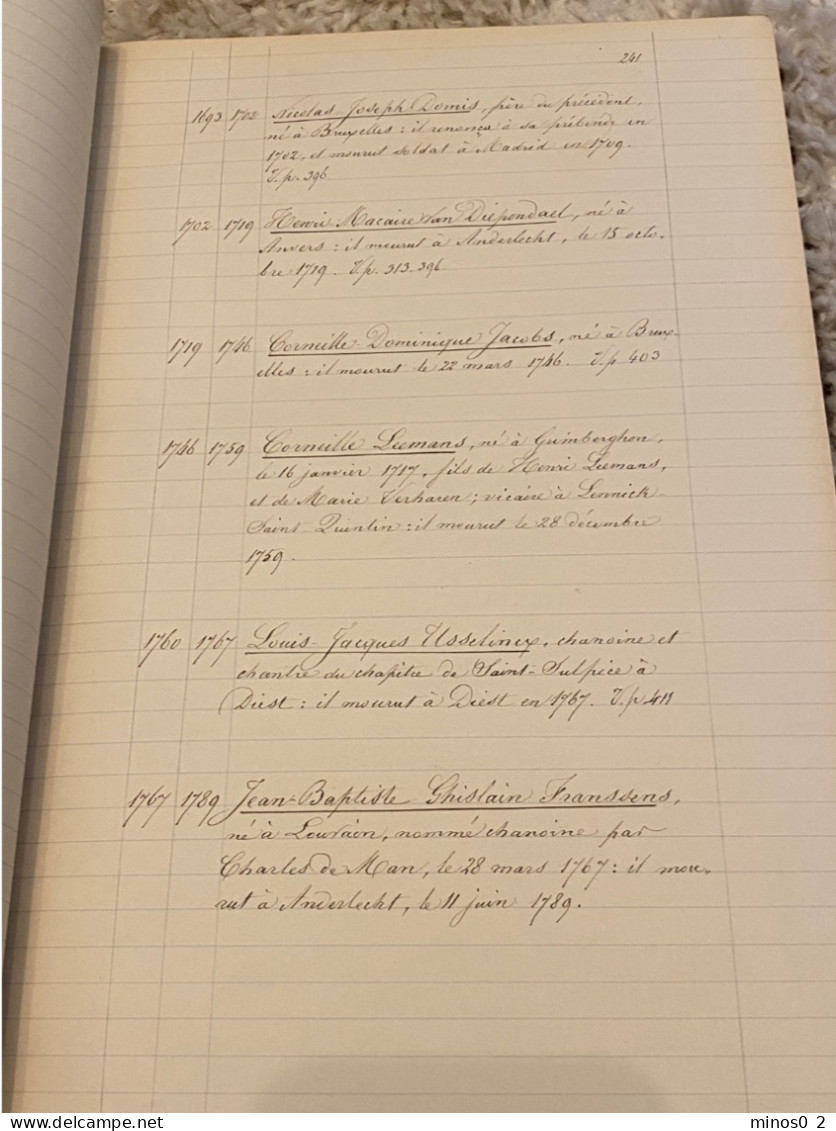 241
1693 1702 Nicolas Joseph Domis, frère du précédent,
né à Bruxelles : il renonça à sa prébende en
1702, et mourut soldat à Madrid en 1709.
V. p. 396
1702 1719 Henri Macaire Van Diependael, né à
Anvers : il mourut à Anderlecht, le 15 octo-
bre 1719. V. p. 313-396
1719 1746 Corneille-Dominique Jacobs, né à Brux-
elles : il mourut le 22 mars 1746. V. p 403
1746 1759 Corneille Leemans, né à Grimberghen,
le 16 janvier 1717, fils de Henri Leemans,
et de Marie Verharen ; vicaire à Lennick-
Saint-Quentin : il mourut le 28 décembre
1759.
1760 1767 Louis-Jacques Usselincx, chanoine et
chantre du chapître de Saint-Sulpice à
Diest : il mourut à Diest en 1767. V. p 411
1767 1789 Jean-Baptiste Ghislain Franssens,
né à Louvain, nommé chanoine par
Charles de Man, le 28 mars 1767 : il mou-
rut à Anderlecht, le 11 juin 1789.
minos0_2